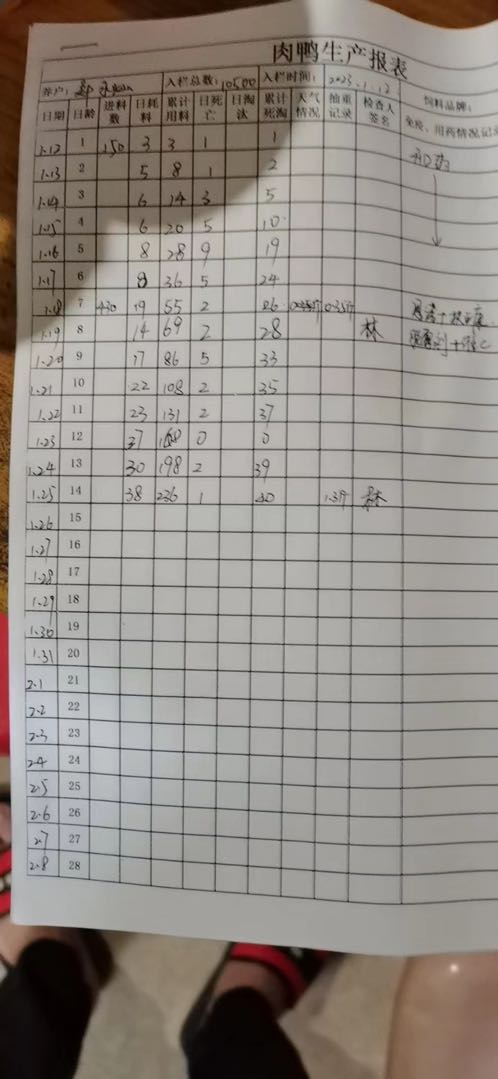 肉鸭生产报表
养户: 入栏总数:10500 入栏时间:2023.1.12
日期 日龄 进料数 日耗料 累计用料 日死亡 日淘汰 累计死淘 天气情况 抽重记录 检查人签名 饲料品牌:
免疫、用药情况记录
1.12 1 150 3 3 1 1
1.13 2 5 8 1 2
1.14 3 6 14 3 5
1.15 4 6 20 5 10
1.16 5 8 28 9 19
1.17 6 8 36 5 24
1.18 7 430 19 55 2 26 0.35斤
1.19 8 14 69 2 28 林
1.20 9 17 86 5 33
1.21 10 22 108 2 35
1.22 11 23 131 2 37
1.23 12 37 168 0 0
1.24 13 30 198 2 39
1.25 14 38 236 1 40 1.3斤 林
1.26 15
1.27 16
1.28 17
1.29 18
1.30 19
1.31 20
2.1 21
2.2 22
2.3 23
2.4 24
2.5 25
2.6 26
2.7 27
2.8 28